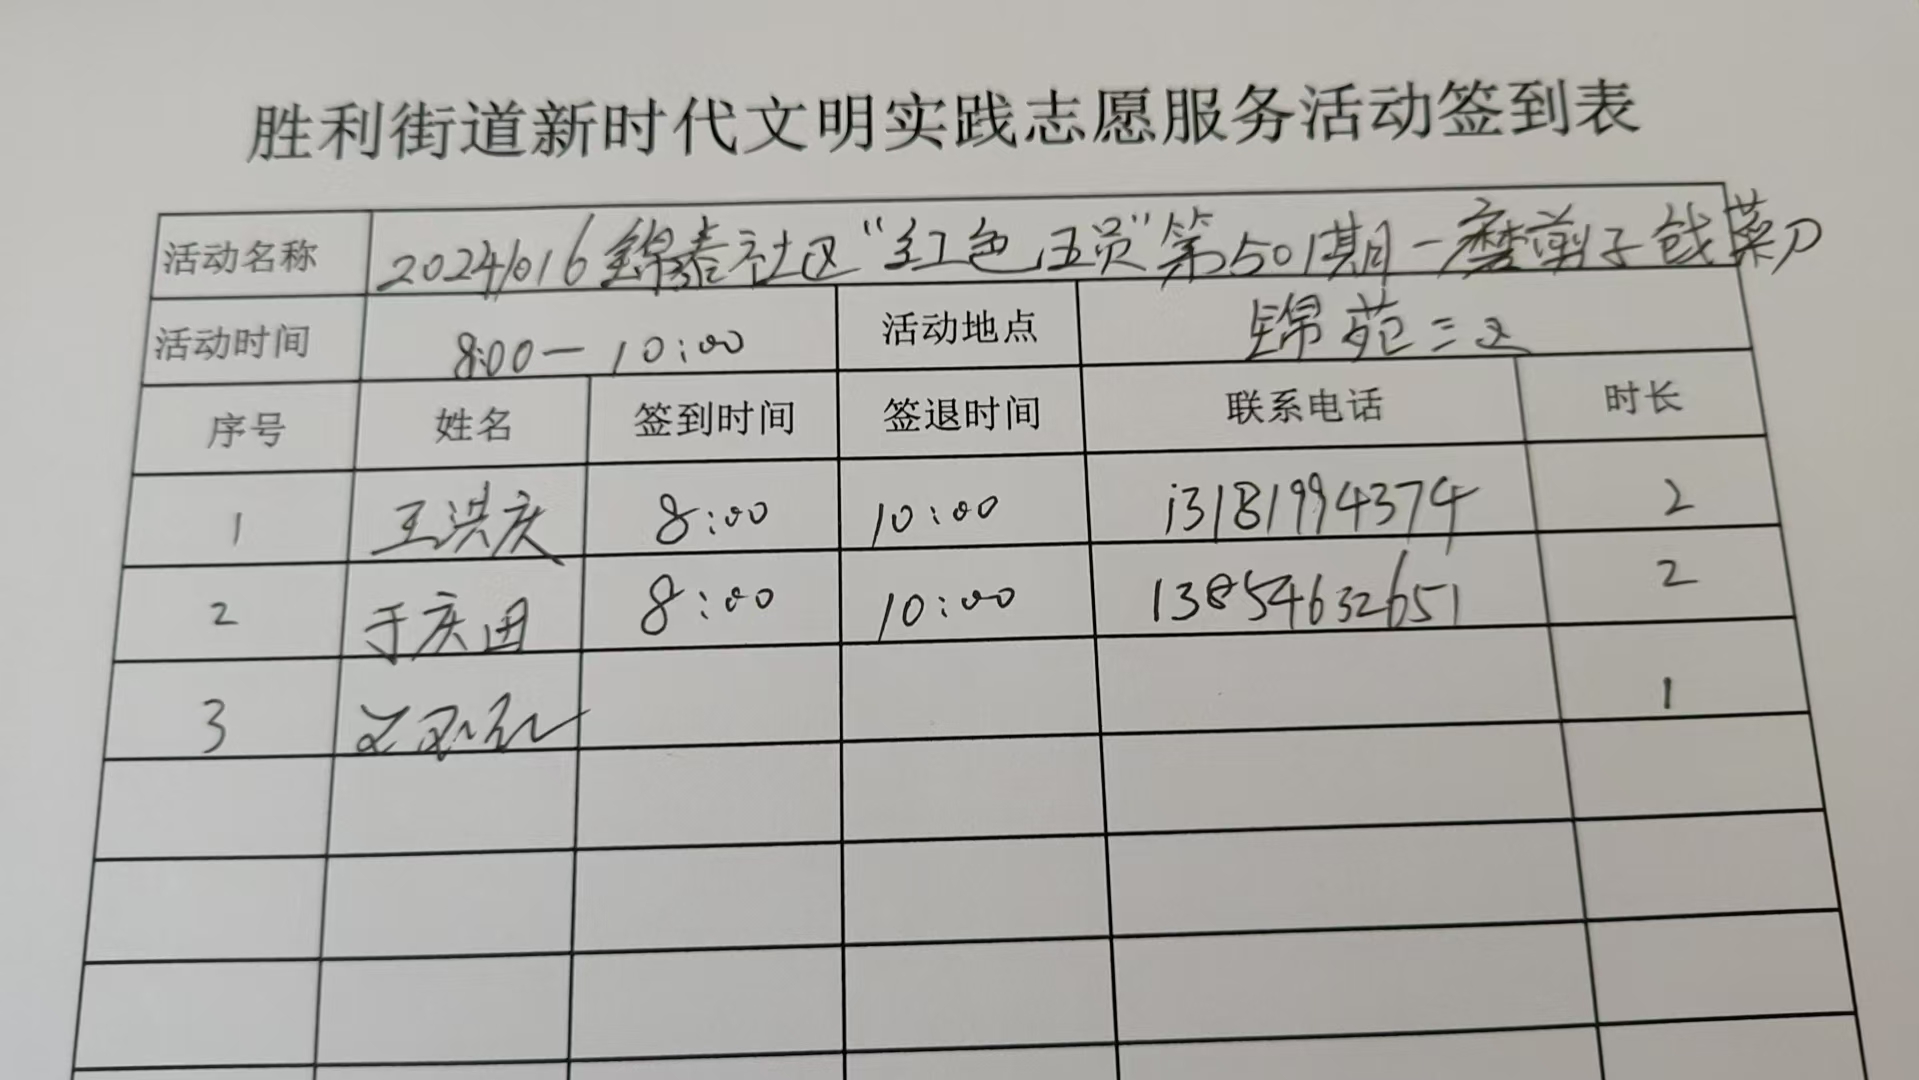 胜利街道新时代文明实践志愿服务活动签到表
活动名称 20241016锦泰社区“红色五员”第501期-磨剪子戗菜刀
活动时间 8:00-10:00 活动地点 锦苑三区
序号 姓名 签到时间 签退时间 联系电话 时长
1 王洪庆 8:00 10:00 13181994374 2
2 于庆田 8:00 10:00 13854632651 2
3 1